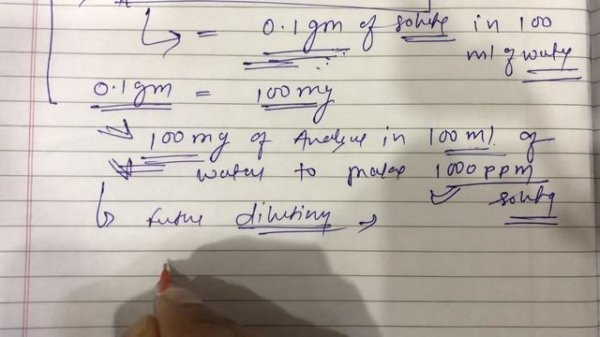 = 0.1gm of solute in 100
ml of water
0.1gm = 100mg
100mg of Analyte in 100ml of
water to make 1000ppm
solutⁿ
diluting →